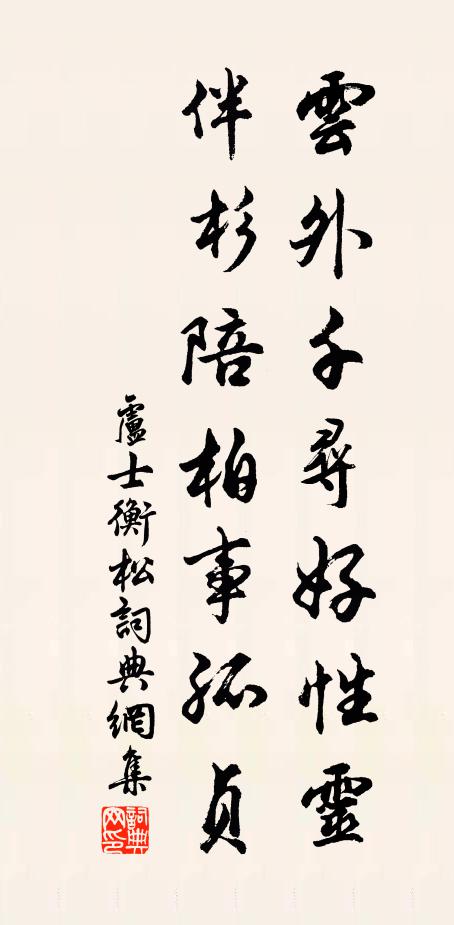 雲外千尋好性靈
伴杉陪柏事孤貞
盧士衡松詞典網集
詞典網印